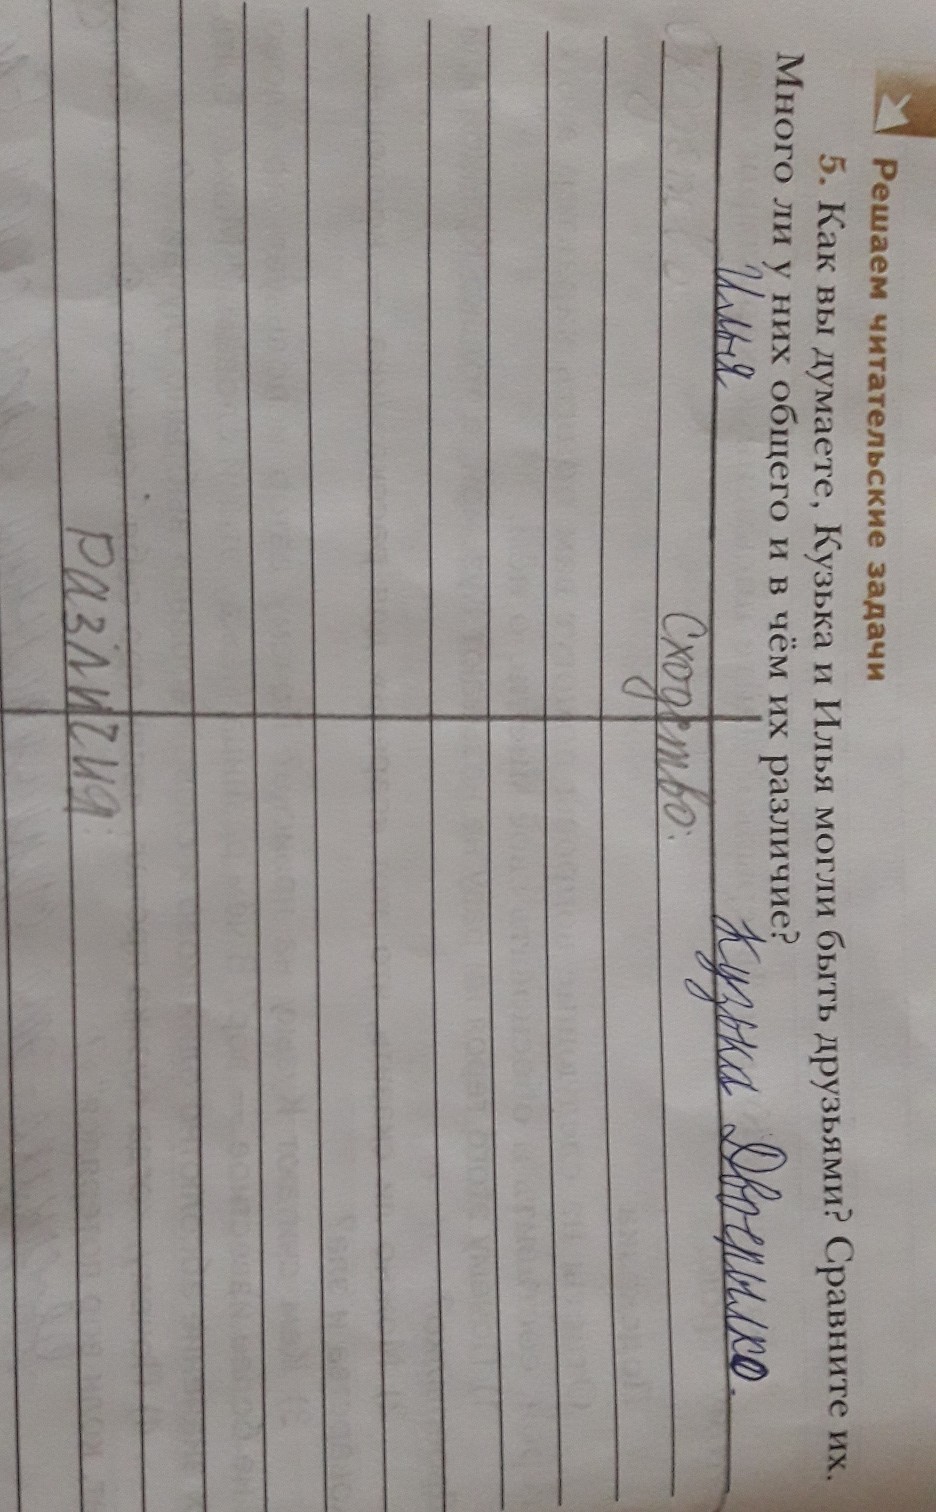 Решаем читательские задачи
5. Как вы думаете, Кузька и Илья могли быть друзьями? Сравните их.
Много ли у них общего и в чём их различие?
Илья Кузька Двоерылко.
Сходство:
Различия: